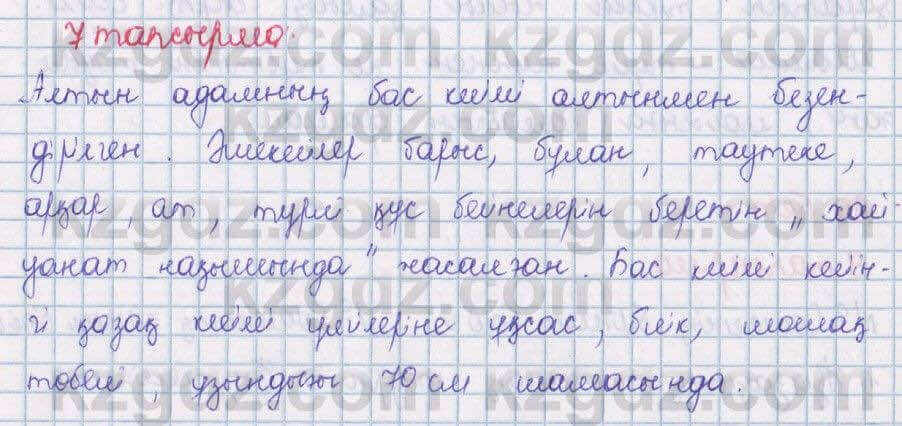 7 тапсырма.
Алтын адамның бас киімі алтынмен безен-
дірілген. Әшекейлер барыс, бұлан, таутеке,
арқар, ат, түрлі құс бейнелерін беретін „хай-
уанат нақышында" жасалған. Бас киімі кейін-
гі қазақ киімі үлгілеріне ұқсас, биік, шошақ
төбелі, ұзындығы 70 см шамасында.
kzgdz.com